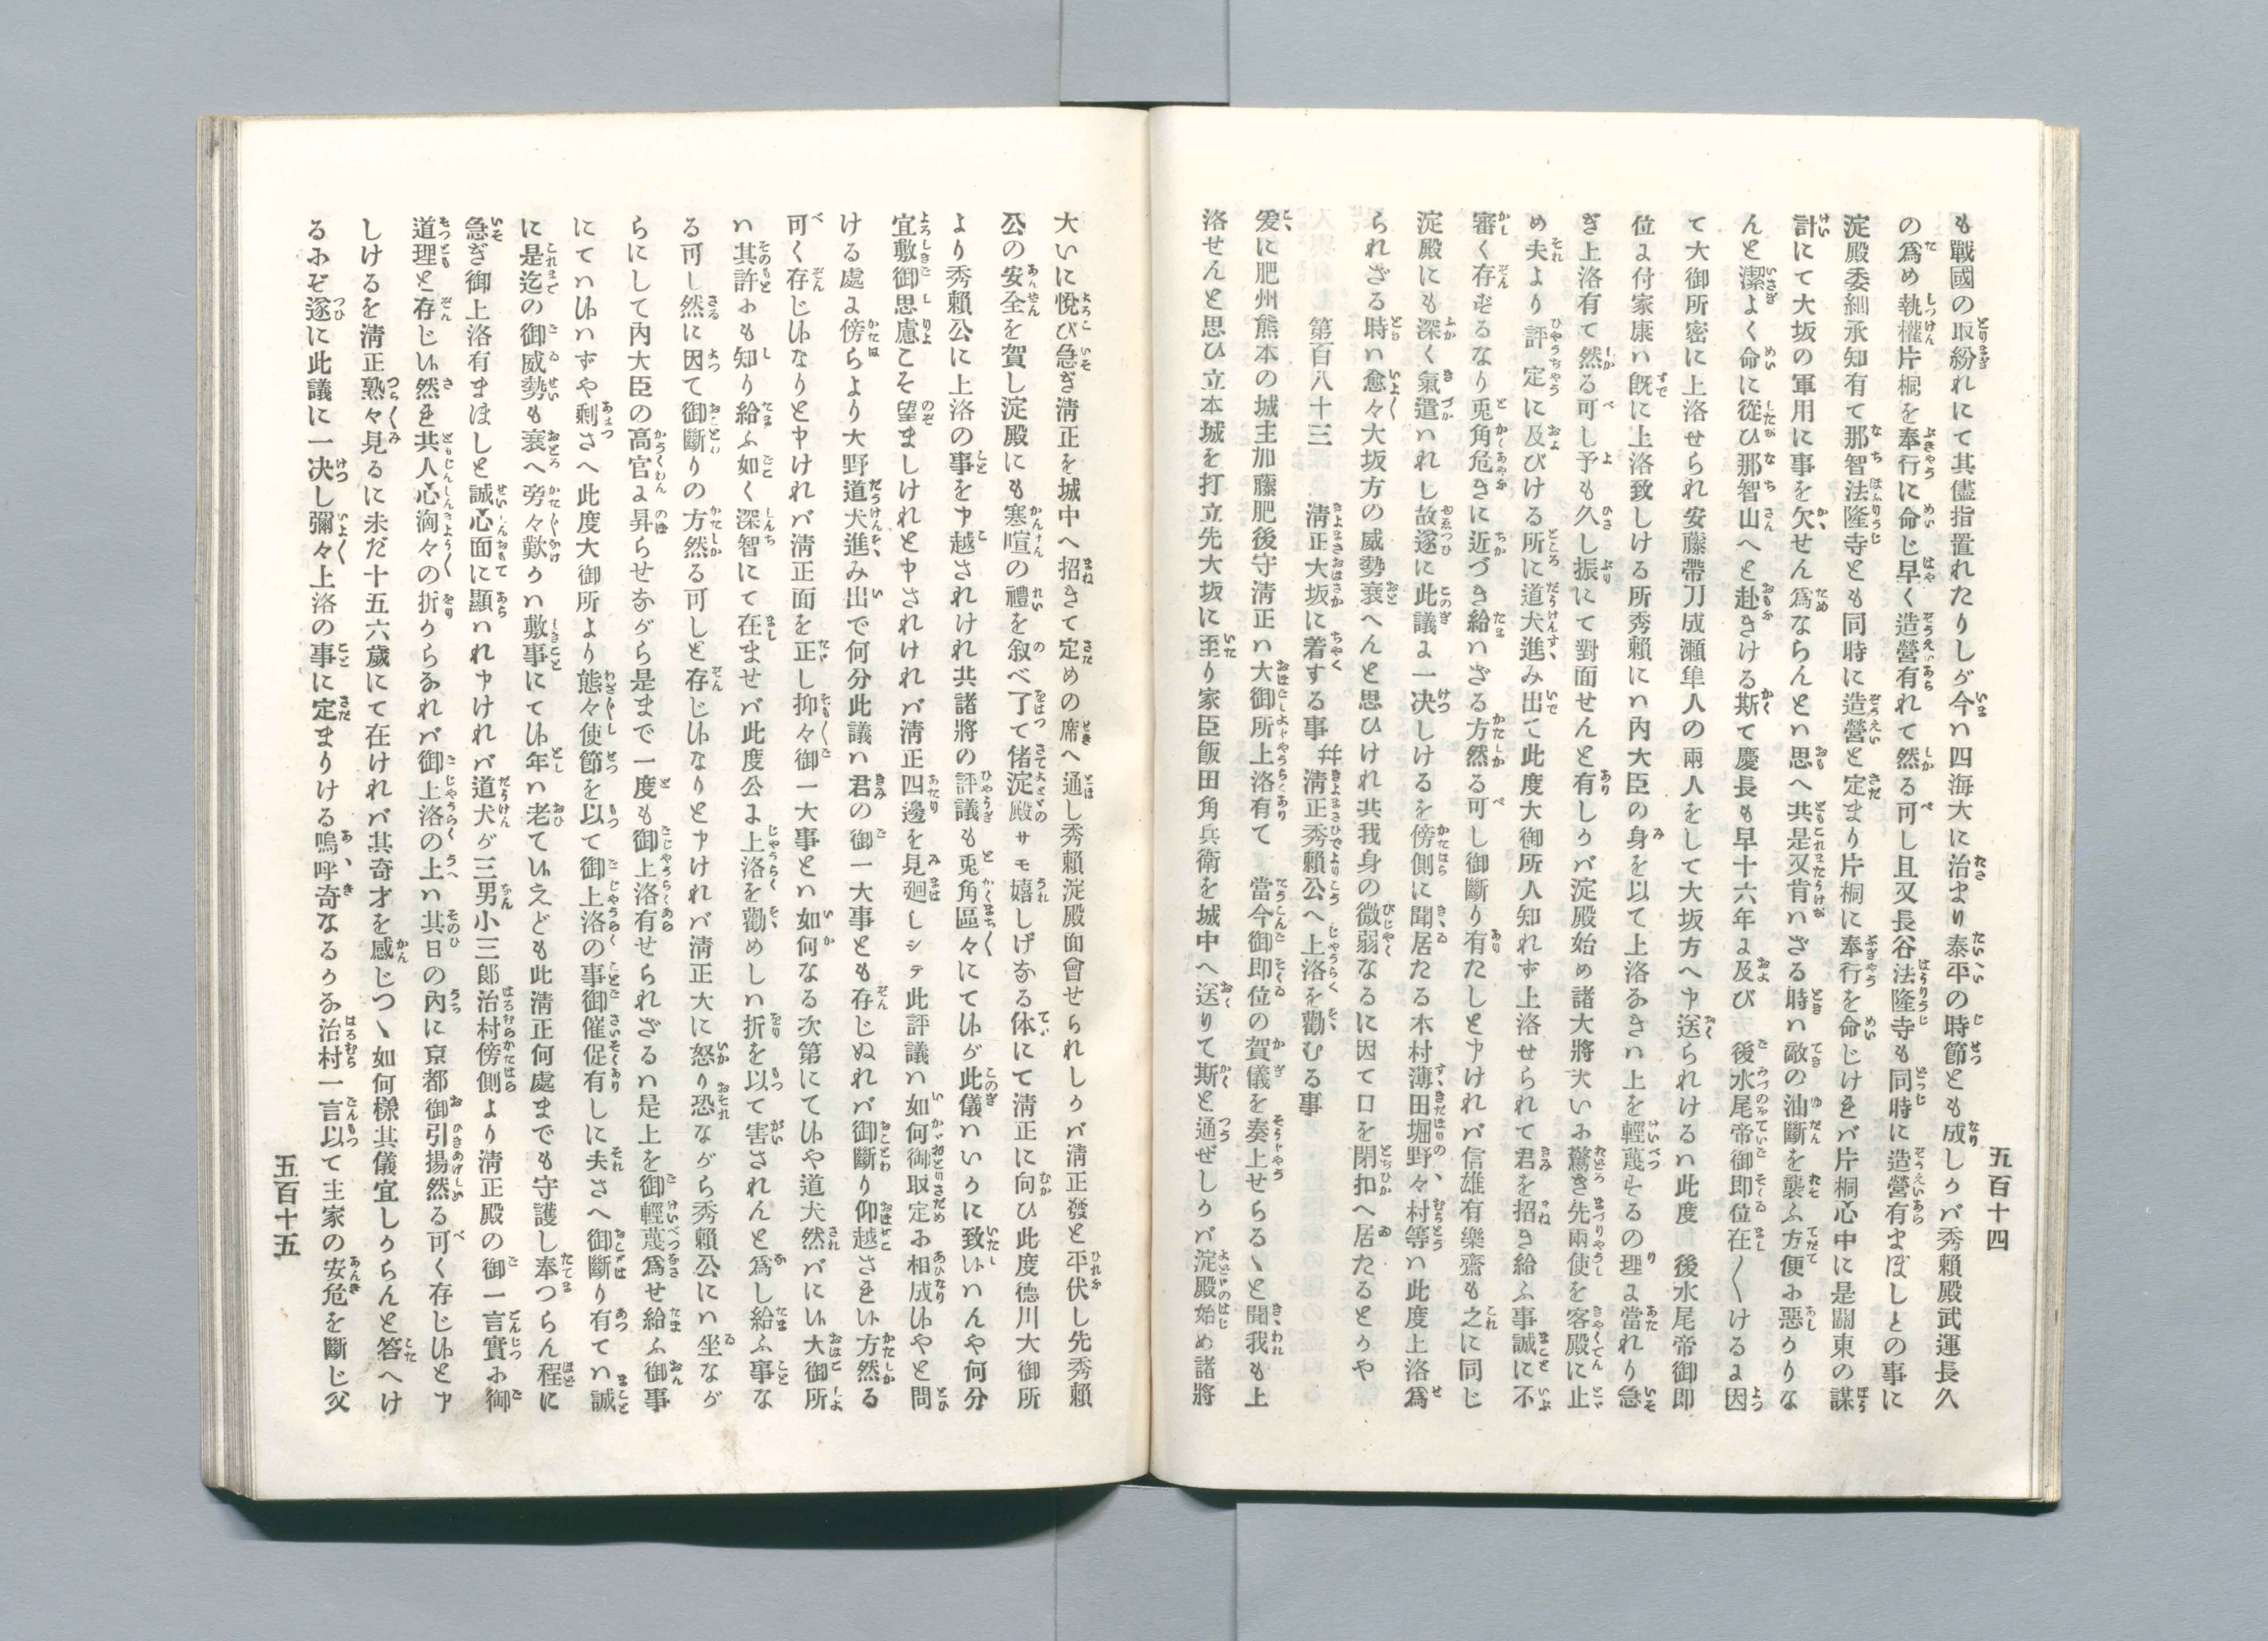 五百十四
も戰國の取紛れにて其儘指置れたりしが今ハ四海大に治まり泰平の時節とも成しかバ秀賴殿武運長久
の爲め執權片桐を奉行に命じ早く造營有れて然る可し且又長谷法隆寺も同時に造營有まぼしとの事に
淀殿委細承知有て那智法隆寺とも同時に造營と定まり片桐に奉行を命じけれバ片桐心中に是關東の謀
計にて大坂の軍用に事を欠せん爲ならんとハ思へ共是又肯ハざる時ハ敵の油斷を襲ふ方便に惡かりな
んと潔よく命に從ひ那智山へと赴きける斯て慶長も早十六年に及び 後水尾帝御即位在〳〵けるに因
て大御所密に上洛せられ安藤帶刀成瀨隼人の兩人をして大坂方へ申送られけるハ此度 後水尾帝御即
位に付家康ハ旣に上洛致しける所秀賴にハ內大臣の身を以て上洛なきハ上を輕蔑するの理に當れり急
ぎ上洛有て然る可し予も久し振にて對面せんと有しかバ淀殿始め諸大將大いに驚き先兩使を客殿に止
め夫より評定に及びける所に道犬進み出て此度大御所人知れず上洛せられて君を招き給ふ事誠に不
審く存ずるなり兎角危きに近づき給ハざる方然る可し御斷り有たしと申けれバ信雄有樂齋も之に同じ
淀殿にも深く氣遣ハれし故遂に此議に一决しけるを傍側に聞居たる木村薄田堀野々村等ハ此度上洛爲
られざる時ハ愈々大坂方の威勢衰へんと思ひけれ共我身の微弱なるに因て口を閉扣へ居たるとかや
第百八十三 淸正大坂に着する事 幷 淸正秀賴公へ上洛を勸むる事
爰に肥州熊本の城主加藤肥後守淸正ハ大御所上洛有て 當今御即位の賀儀を奏上せらるゝと聞我も上
洛せんと思ひ立本城を打立先大坂に至り家臣飯田角兵衛を城中へ送りて斯と通ぜしかバ淀殿始め諸將
大いに悅び急ぎ淸正を城中へ招きて定めの席へ通し秀賴淀殿面會せられしかバ淸正發と平伏し先秀賴
公の安全を賀し淀殿にも寒暄の禮を叙べ了て偖淀殿サモ嬉しげなる体にて淸正に向ひ此度德川大御所
より秀賴公に上洛の事を申越されけれ共諸將の評議も兎角區々にて㕝が此儀ハいかに致㕝ハんや何分
宜敷御思慮こそ望ましけれと申されけれバ淸正四邊を見廻しシテ此評議ハ如何御取定に相成㕝やと問
ける處に傍らより大野道犬進み出で何分此議ハ君の御一大事とも存じぬれバ御斷り仰越され㕝方然る
可く存じ㕝なりと申けれバ淸正面を正し抑々御一大事とハ如何なる次第にて㕝や道犬然バに㕝大御所
ハ其許にも知り給ふ如く深智にて在ませバ此度公に上洛を勸めしハ折を以て害されんと爲し給ふ事な
る可し然に因て御斷りの方然る可しと存じ㕝なりと申けれバ淸正大に怒り恐ながら秀賴公にハ坐なが
らにして內大臣の高官に昇らせながら是まで一度も御上洛有せられざるハ是上を御輕蔑爲せ給ふ御事
にてハ㕝ハずや剩さへ此度大御所より態々使節を以て御上洛の事御催促有しに夫さへ御斷り有てハ誠
に是迄の御威勢も衰へ旁々歎かハ敷事にて㕝年ハ老て㕝えども此淸正何處までも守護し奉つらん程に
急ぎ御上洛有まほしと誠心面に顯ハれ申けれバ道犬が三男小三郎治村傍側より淸正殿の御一言實に御
道理と存じ㕝然を共人心洶々の折からなれバ御上洛の上ハ其日の內に京都御引揚然る可く存じ㕝と申
しけるを淸正熟々見るに未だ十五六歲にて在けれバ其奇才を感じつゝ如何樣其儀宜しからんと答へけ
るにぞ遂に此議に一决し彌々上洛の事に定まりける嗚呼奇なるかな治村一言以て主家の安危を斷じ父
五百十五